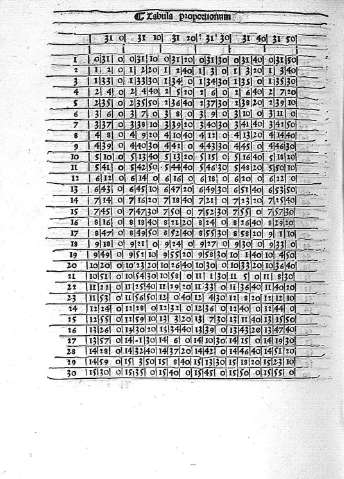 Tabula proportionum
31 0 31 10 31 20 31 30 31 40 31 50
1 0 31 0 0 31 10 0 31 20 0 31 30 0 31 40 0 31 50
2 1 2 0 1 2 20 1 2 40 1 3 0 1 3 20 1 3 40
3 1 33 0 1 33 30 1 34 0 1 34 30 1 35 0 1 35 30
4 2 4 0 2 4 40 2 5 20 2 6 0 2 6 40 2 7 20
5 2 35 0 2 35 50 2 36 40 2 37 30 2 38 20 2 39 10
6 3 6 0 3 7 0 3 8 0 3 9 0 3 10 0 3 11 0
7 3 37 0 3 38 10 3 39 20 3 40 30 3 41 40 3 42 50
8 4 8 0 4 9 20 4 10 40 4 12 0 4 13 20 4 14 40
9 4 39 0 4 40 30 4 42 0 4 43 30 4 45 0 4 46 30
10 5 10 0 5 11 40 5 13 20 5 15 0 5 16 40 5 18 20
11 5 41 0 5 42 50 5 44 40 5 46 30 5 48 20 5 50 10
12 6 12 0 6 14 0 6 16 0 6 18 0 6 20 0 6 22 0
13 6 43 0 6 45 10 6 47 20 6 49 30 6 51 40 6 53 50
14 7 14 0 7 16 20 7 18 40 7 21 0 7 23 20 7 25 40
15 7 45 0 7 47 30 7 50 0 7 52 30 7 55 0 7 57 30
16 8 16 0 8 18 40 8 21 20 8 24 0 8 26 40 8 29 20
17 8 47 0 8 49 50 8 52 40 8 55 30 8 58 20 9 1 10
18 9 18 0 9 21 0 9 24 0 9 27 0 9 30 0 9 33 0
19 9 49 0 9 52 10 9 55 20 9 58 30 10 1 40 10 4 50
20 10 20 0 10 23 20 10 26 40 10 30 0 10 33 20 10 36 40
21 10 51 0 10 54 30 10 58 0 11 1 30 11 5 0 11 8 30
22 11 22 0 11 25 40 11 29 20 11 33 0 11 36 40 11 40 20
23 11 53 0 11 56 50 12 0 40 12 4 30 12 8 20 12 12 10
24 12 24 0 12 28 0 12 32 0 12 36 0 12 40 0 12 44 0
25 12 55 0 12 59 10 13 3 20 13 7 30 13 11 40 13 15 50
26 13 26 0 13 30 20 13 34 40 13 39 0 13 43 20 13 47 40
27 13 57 0 14 1 30 14 6 0 14 10 30 14 15 0 14 19 30
28 14 28 0 14 32 40 14 37 20 14 42 0 14 46 40 14 51 20
29 14 59 0 15 3 50 15 8 40 15 13 30 15 18 20 15 23 10
30 15 30 0 15 35 0 15 40 0 15 45 0 15 50 0 15 55 0